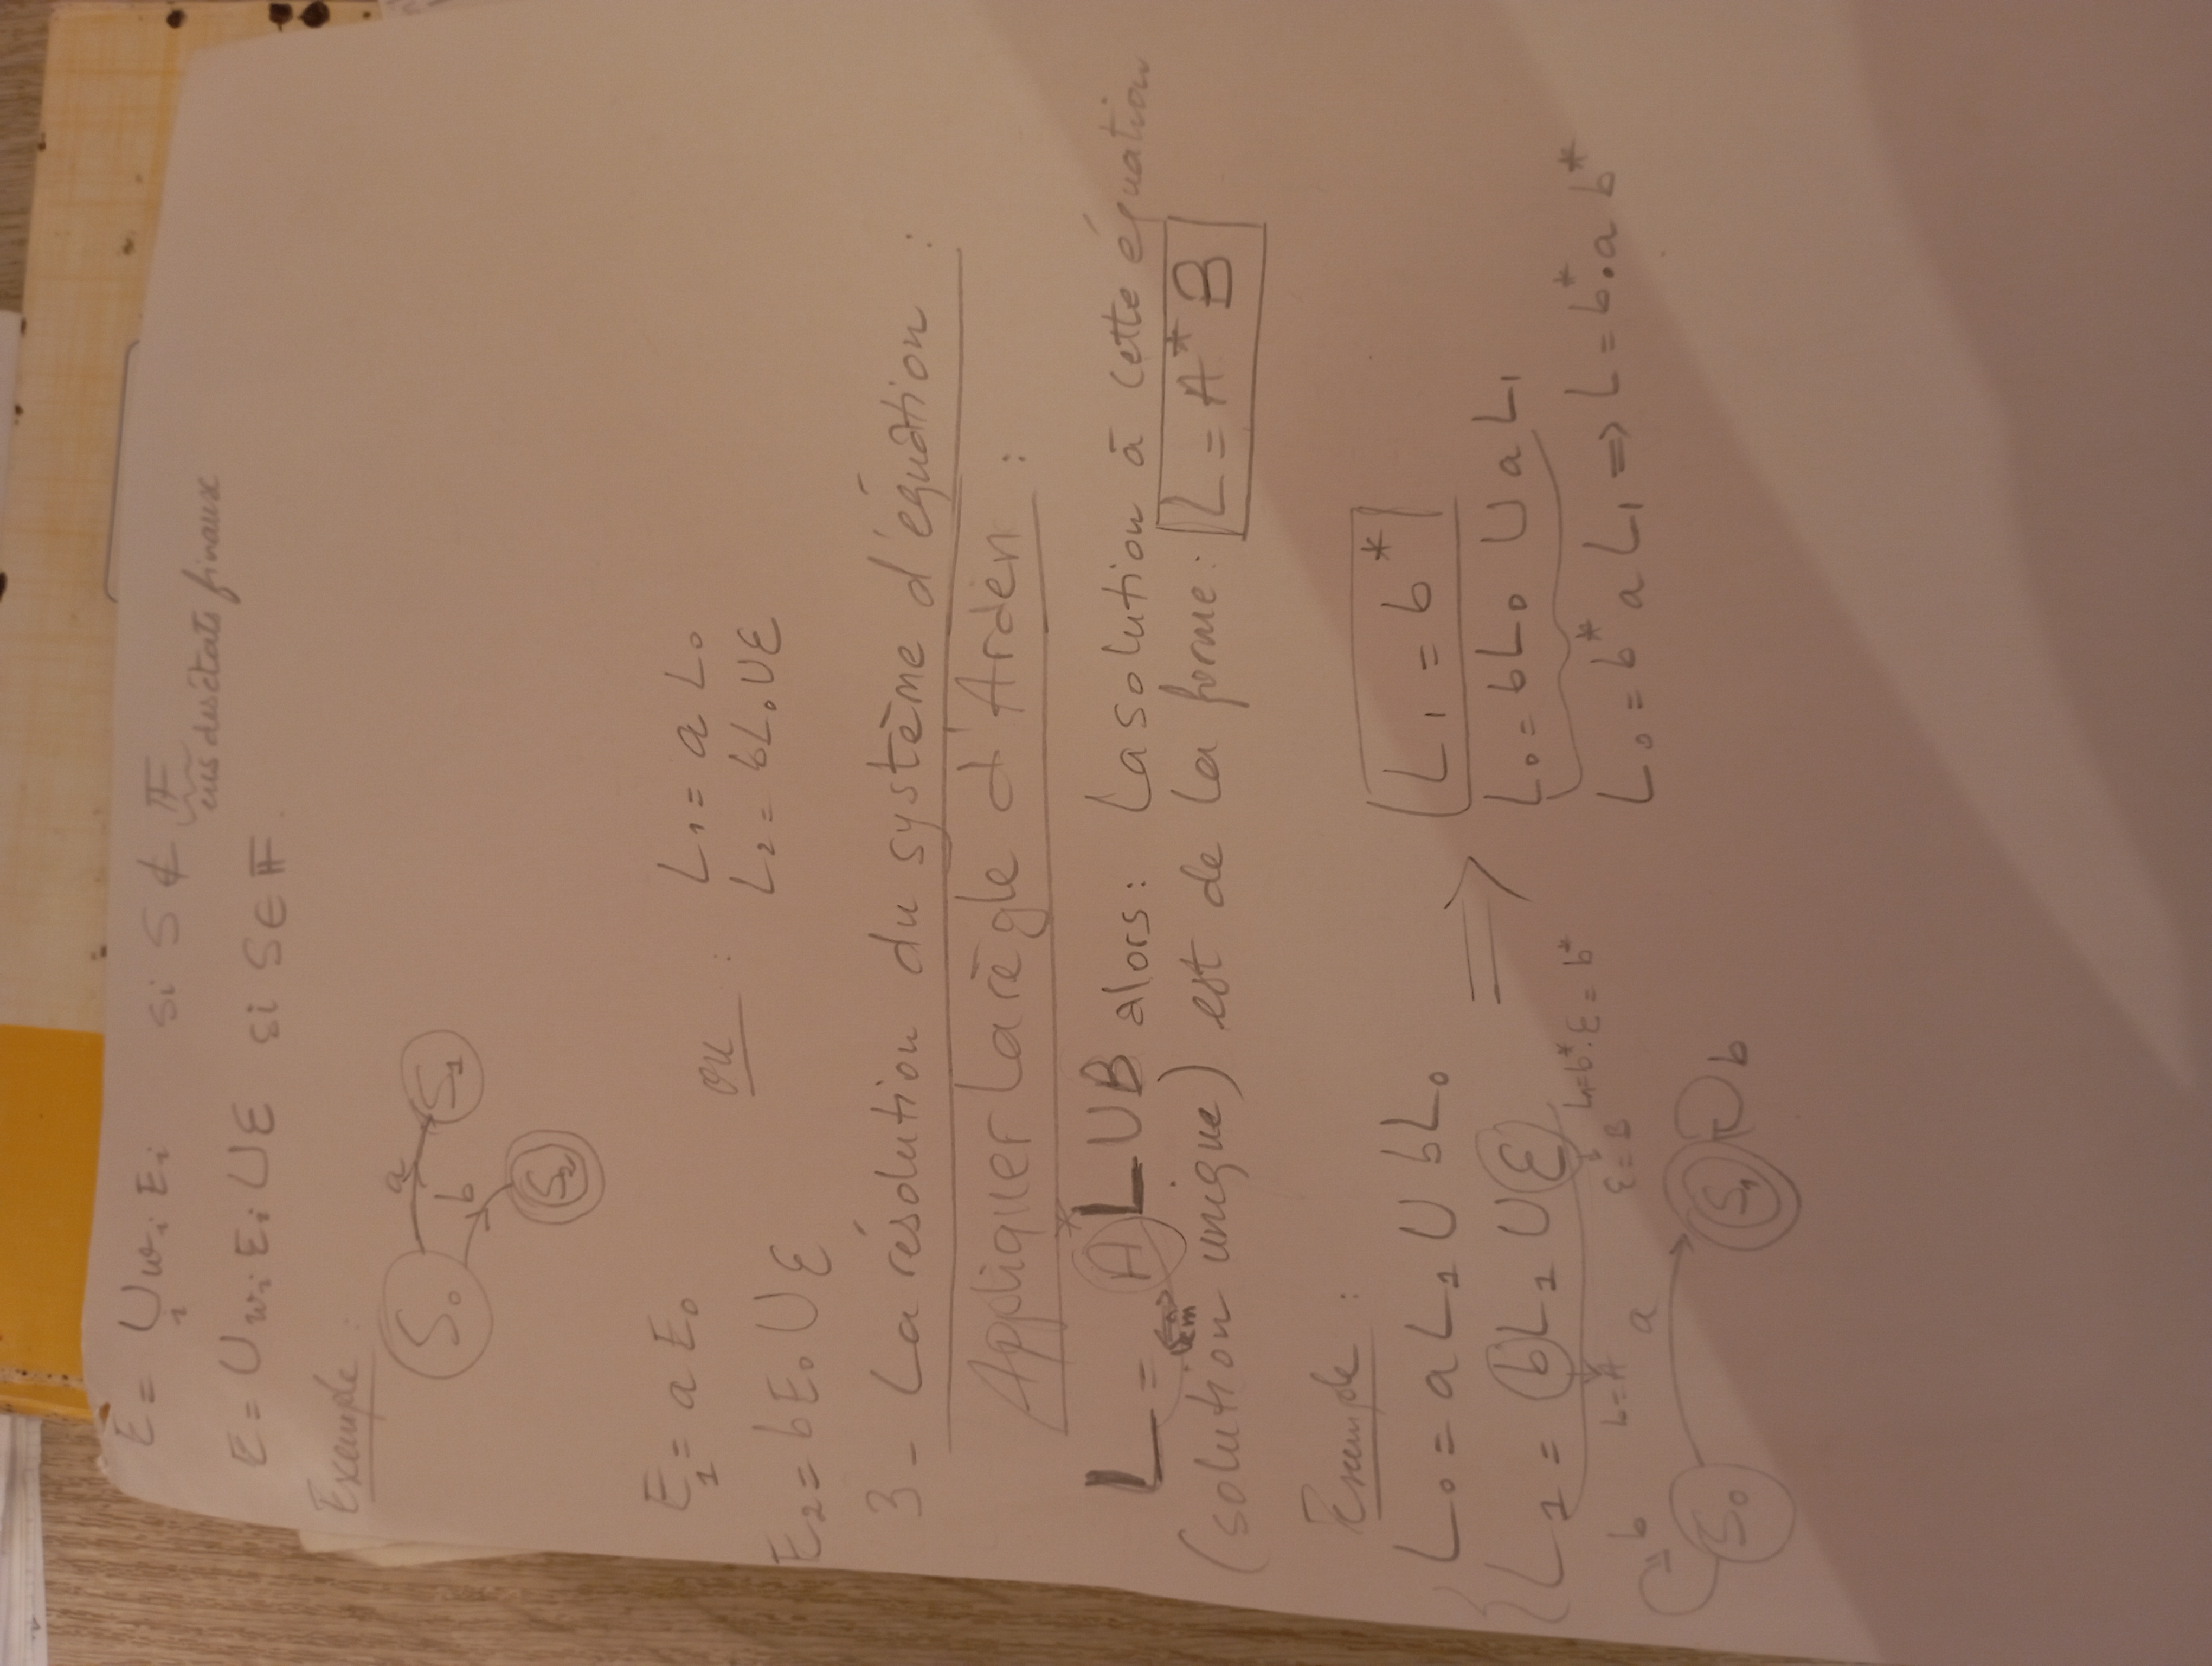 E = ∪ wᵢ Eᵢ si S ∉ F
i
ens des états finaux
E = ∪ wᵢ Eᵢ ∪ ε si S ∈ F.
Exemple :
S₀ a S₁
b
S₂
E₁ = a E₀
ou : L₁ = a L₀
L₂ = bL₀ ∪ ε
E₂ = bE₀ ∪ ε
3 - La résolution du système d'équation :
Appliquer la règle d'Arden :
L = A* L ∪ B alors : La solution à cette équation
(solution unique) est de la forme : L = A* B
Exemple :
L₀ = a L₁ ∪ bL₀
L₁ = bL₁ ∪ ε
b = A ε = B L₁=b*.ε = b*
⟹ L₁ = b*
L₀ = bL₀ ∪ a L₁
L₀ = b* a L₁ ⟹ L = b*.a b*
b a
S₀ S₁ b